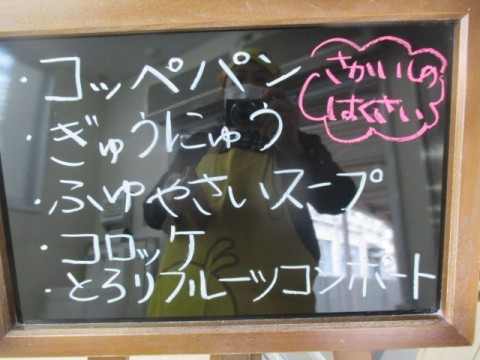 ・コッペパン
・ぎゅうにゅう
・ふゆやさいスープ
・コロッケ
・とろりフルーツコンポート
さかいしの
はくさい